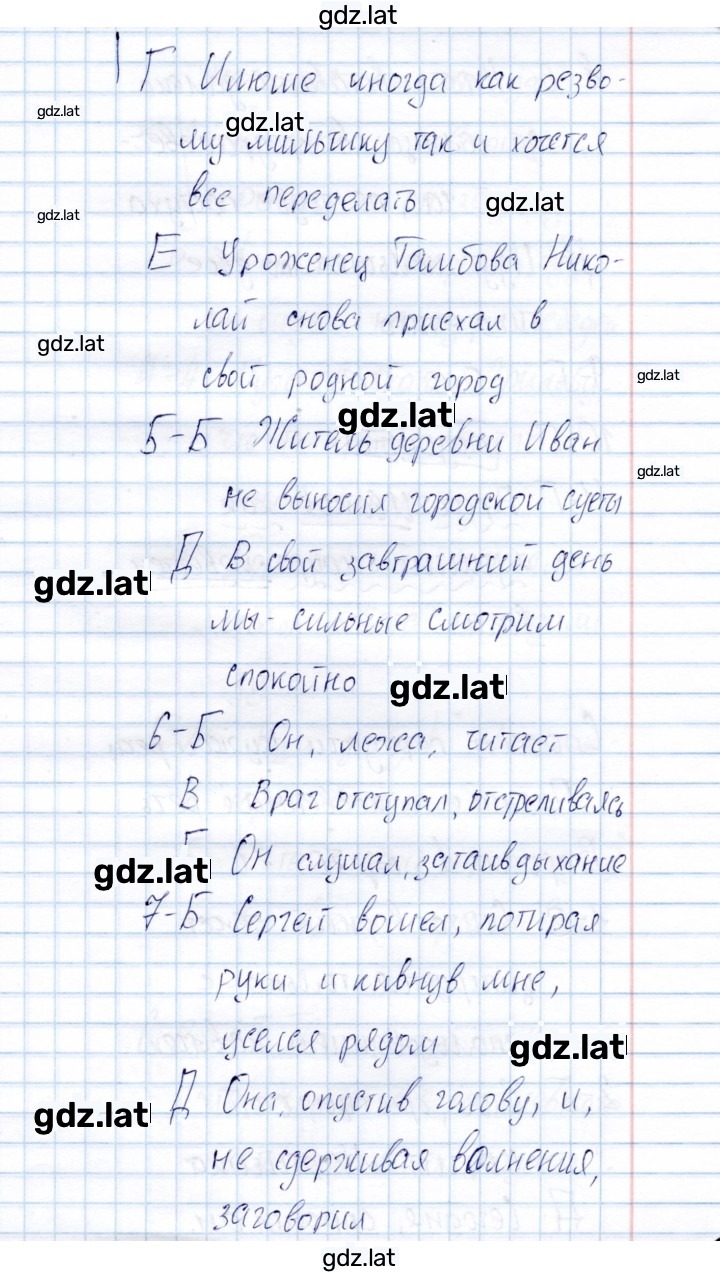 gdz.lat
Г Илюше иногда как резво-
gdz.lat
gdz.lat
му мальчику так и хочется
все переделать
gdz.lat
gdz.lat
Е Уроженец Тамбова Нико-
лай снова приехал в
gdz.lat
свой родной город
gdz.lat
gdz.lat
5-Б Житель деревни Иван
gdz.lat
не выносил городской суеты
Д В свой завтрашний день
gdz.lat
мы - сильные смотрим
спокойно
gdz.lat
6-Б Он, лежа, читает
В Враг отступал, отстреливаясь
Г Он слушал, затаив дыхание
gdz.lat
7-Б Сергей вошел, потирая
руки и кивнув мне,
уселся рядом
gdz.lat
Д Она, опустив голову, и,
gdz.lat
не сдерживая волнения,
заговорил
gdz.lat